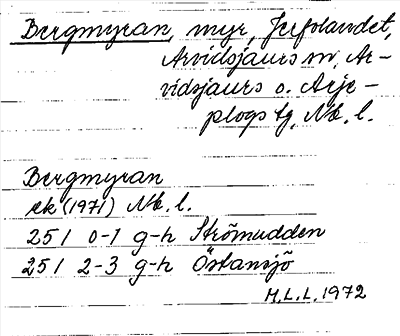 Bergmyran, myr, Jerfolandet,
Arvidsjaurs sn, Ar-
vidsjaurs o. Arje-
plogs tg, Nb. l.
Bergmyran
ek (1971) Nb. l.
25 I 0-1 g-h Strömudden
25 I 2-3 g-h Östansjö
M.L.L. 1972